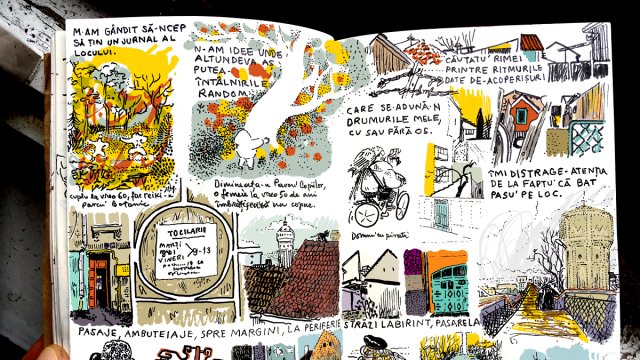 M-AM GÂNDIT SĂ-NCEP
SĂ TIN UN JURNAL AL
LOCULUI.
N-AM IDEE UNDE
ALTUNDEVA AȘ
PUTEA-
ÎNTÂLNIRILE
RANDOM.
Cuplu la vreo 60, fac reiki-n
Parcul Botanic
Dimineața-n Parcul Copiilor,
o femeie la vreo 50 de ani
îmbrățișează un copac.
TOCILARIE
MARȚI
JOI
VINERI
9-13
PASAJE, AMBUTEIAJE, SPRE MARGINI, LA PERIFERII
CĂUTATU' RIMEI
PRINTRE RITMURILE
DATE DE-ACOPERIȘURI
CARE SE-ADUNĂ-N
DRUMURILE MELE,
CU SAU FĂRĂ OS.
ÎMI DISTRAGE-ATENȚIA
DE LA FAPTU' CĂ BAT
PASU' PE LOC.
STRĂZI LABIRINT, PASARELA